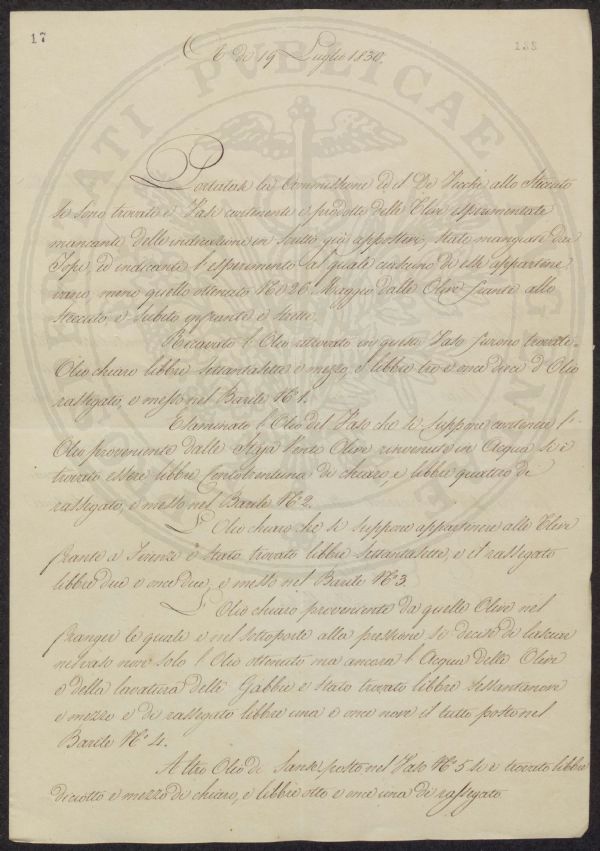 17
133
A dì 19 Luglio 1830.
Portatasi la Commissione ed il De Vecchi allo Steccuto
si sono trovati i Vasi contenenti i prodotti delle Olive esperimentate
mancanti delle indicazioni in scritto già apposteri, state mangiate dai
Topi, ed indicanti l'esperimento al quale ciascuno di essi apparteneva
meno quello ottenuto il 26 Maggio dalle Olive frante allo
Steccuto, e subito infrante e strette.
Ricavato l'Olio ritrovato in questo Vaso furono trovate
Olio chiaro libbre sessantasette e mezzo, e libbre tre e once dieci d'Olio
rassegato, e messo nel Barile N° 1.
Esaminato l'Olio del Vaso che si suppone contenere l'
Olio proveniente dalle Staja Venti Olive rinvenute in Acqua si è
trovato essere libbre Centotrentuna di chiaro, e libbre quattro di
rassegato, e messo nel Barile N° 2.
L'Olio chiaro che si suppone appartenere alle Olive
frante a Firenze è stato trovato libbre settantasette, e il rassegato
libbre due e once due, e messo nel Barile N° 3
L'Olio chiaro proveniente da quelle Olive nel
franger le quali e nel sottoporle alla pressione si decise di lasciar
nel vaso non solo l'Olio ottenuto ma ancora l'Acqua delle Olive
e della lavatura delle Gabbie è stato trovato libbre sessantanove
e mezzo e di rassegato libbre una e once nove il tutto posto nel
Barile N° 4.
Altro Olio di Sansa posto nel Vaso N° 5 si è trovato libbre
diciotto e mezzo di chiaro, e libbre otto e once una di rassegato